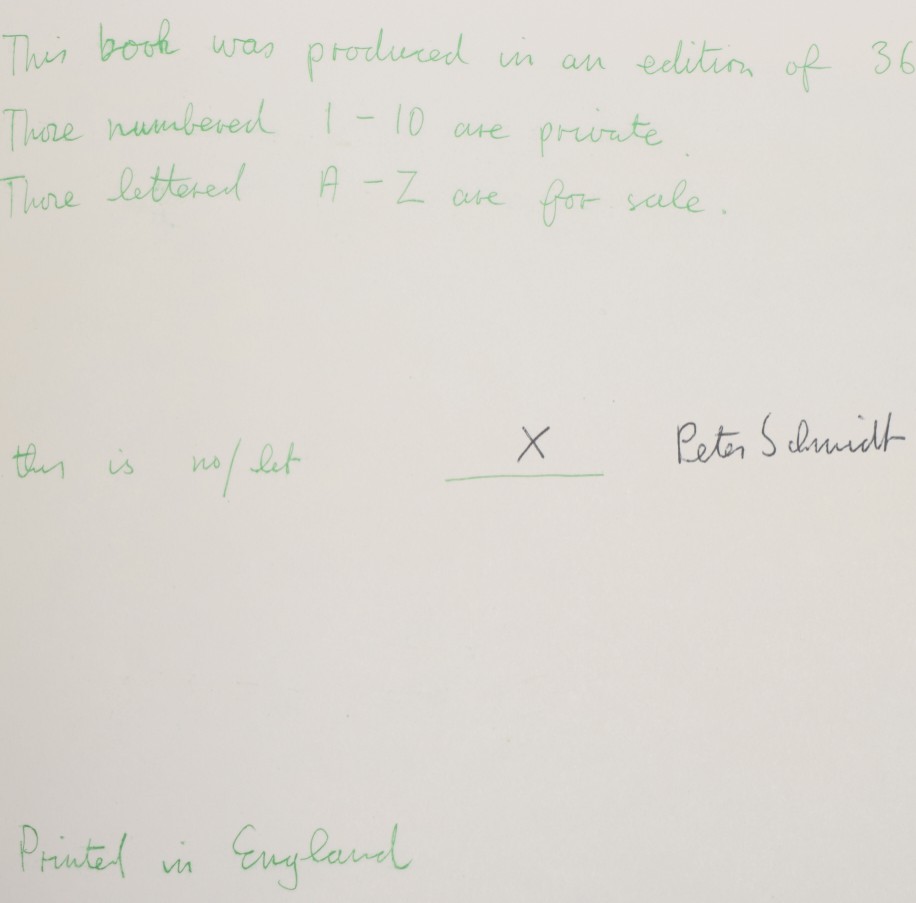 This book was produced in an edition of 36
Those numbered 1 - 10 are private.
Those lettered A - Z are for sale.
this is no/let X Peter Schmidt
Printed in England